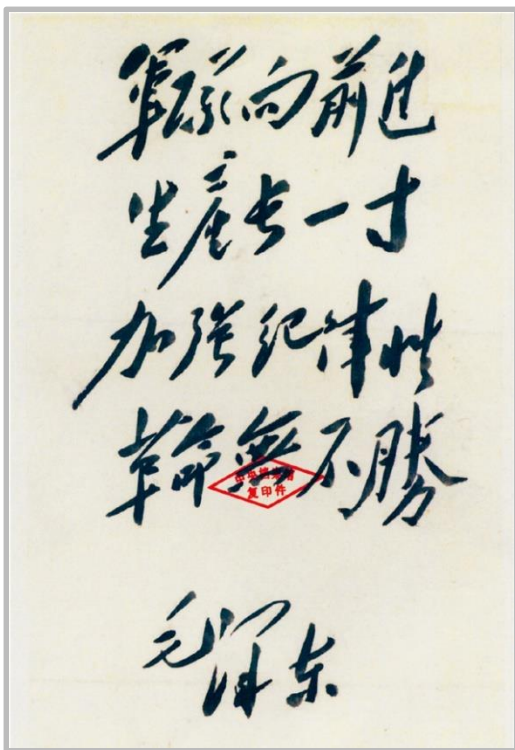 軍隊向前進
生產长一寸
加强紀律性
革命無不勝
中央档案馆
复印件
毛泽东